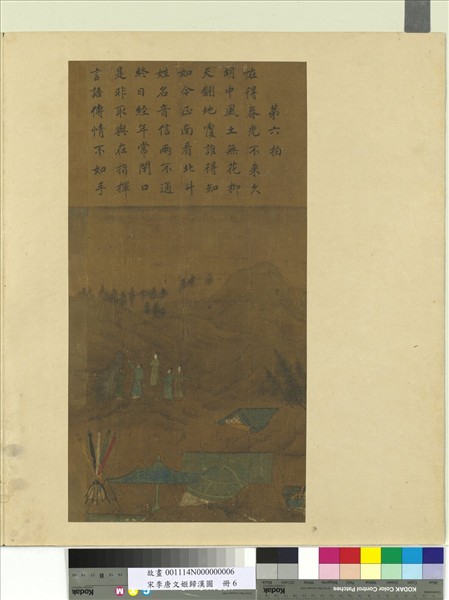 第六拍
恠得春光不來久
胡中風土無花柳
天翻地覆誰得知
如今正南看北斗
姓名音信兩不通
終日經年常閉口
是非取與在指撝
言語傳情不如手
故畫 001114N000000006
宋李唐文姬歸漢圖 冊 6
KODAK Color Control Patches
Kodak